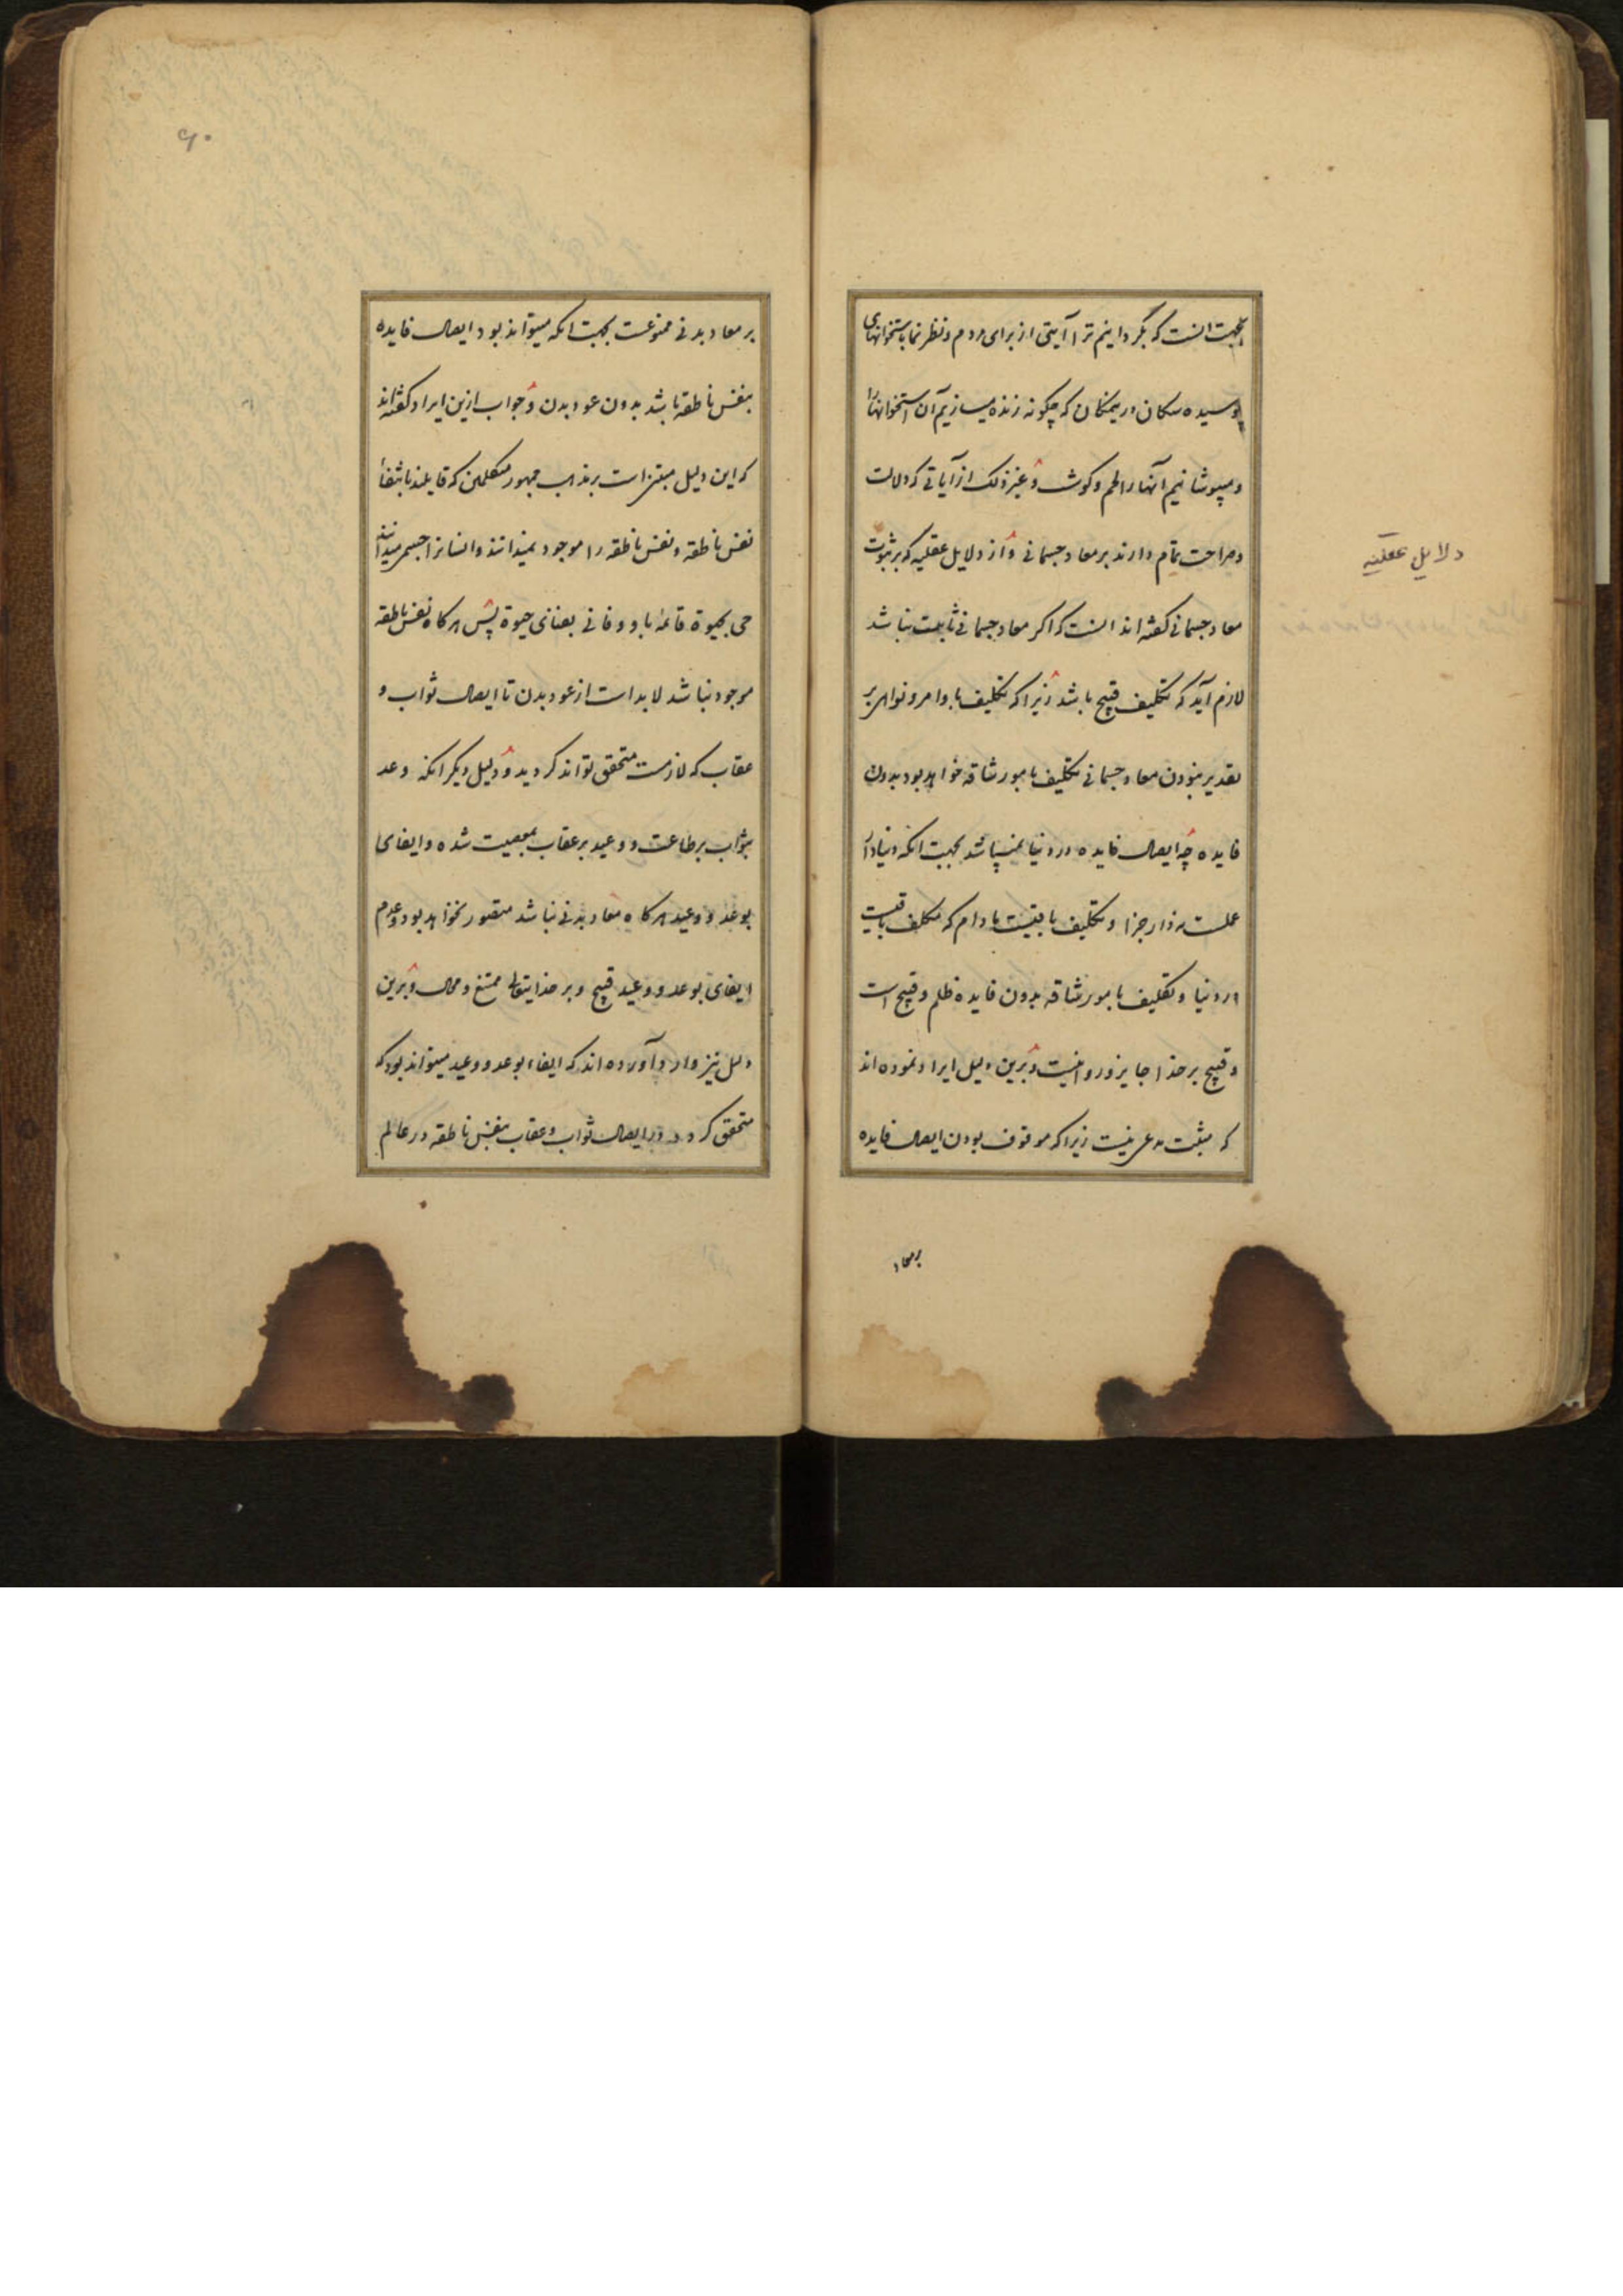 بجهت انست که بگردانیم ترا آیتی از برای مردم و نظر نما باستخوانهای
پوسیده سکان در یمکان که چگونه زنده میسازیم آن استخوانها را
و میپوشانیم آنها را لحم و کوشت و غیر ذلک از آیاتی که دلالت
و صراحت تمام دارند بر معاد جسمانی و از دلایل عقلیه که بر ثبوت
دلایل عقلیه
معاد جسمانی کفته اند انست که اکر معاد جسمانی ثابت نباشد
لازم آید که تکلیف قبیح باشد زیرا که تکلیف باوامر و نواهی بر
تقدیر نبودن معاد جسمانی تکلیف بامور شاقه خواهد بود بدون
فایده چه ایصال فایده در دنیا نمیباشد بجهت انکه دنیا دار
عملست نه دار جزا و تکلیف باقیست مادام که مکلف باقیست
در دنیا و تکلیف بامور شاقه بدون فایده ظلم و قبیح است
و قبیح بر خدا جایز و روا نیست و برین دلیل ایراد نموده اند
که مثبت مدعی نیست زیرا که موقوف بودن ایصال فایده
بر معاد
۶۰
بر معاد بدنی ممنوعست بجهت انکه میتواند بود ایصال فایده
بنفس ناطقه باشد بدون عود بدن و جواب ازین ایراد کفته اند
که این دلیل مبتنی است بر مذهب جمهور متکلمین که قایلند بانتفاء
نفس ناطقه و نفس ناطقه را موجود نمیدانند و انسانرا جسم میدانند
حی بحیوة قائمه باو و فانی بفنای حیوة پس هر کاه نفس ناطقه
موجود نباشد لابد است از عود بدن تا ایصال ثواب و
عقاب که لازمست متحقق تواند کردید و دلیل دیکر انکه وعد
بثواب بر طاعت و وعید بر عقاب بمعصیت شده و ایفای
بوعد و وعید هر کاه معاد بدنی نباشد متصور نخواهد بود و عدم
ایفای بوعد و وعید قبیح و بر خدایتعالی ممتنع و محال و برین
دلیل نیز وارد آورده اند که ایفاء بوعد و وعید میتواند بود که
متحقق کردد در ایصال ثواب و عقاب بنفس ناطقه در عالم